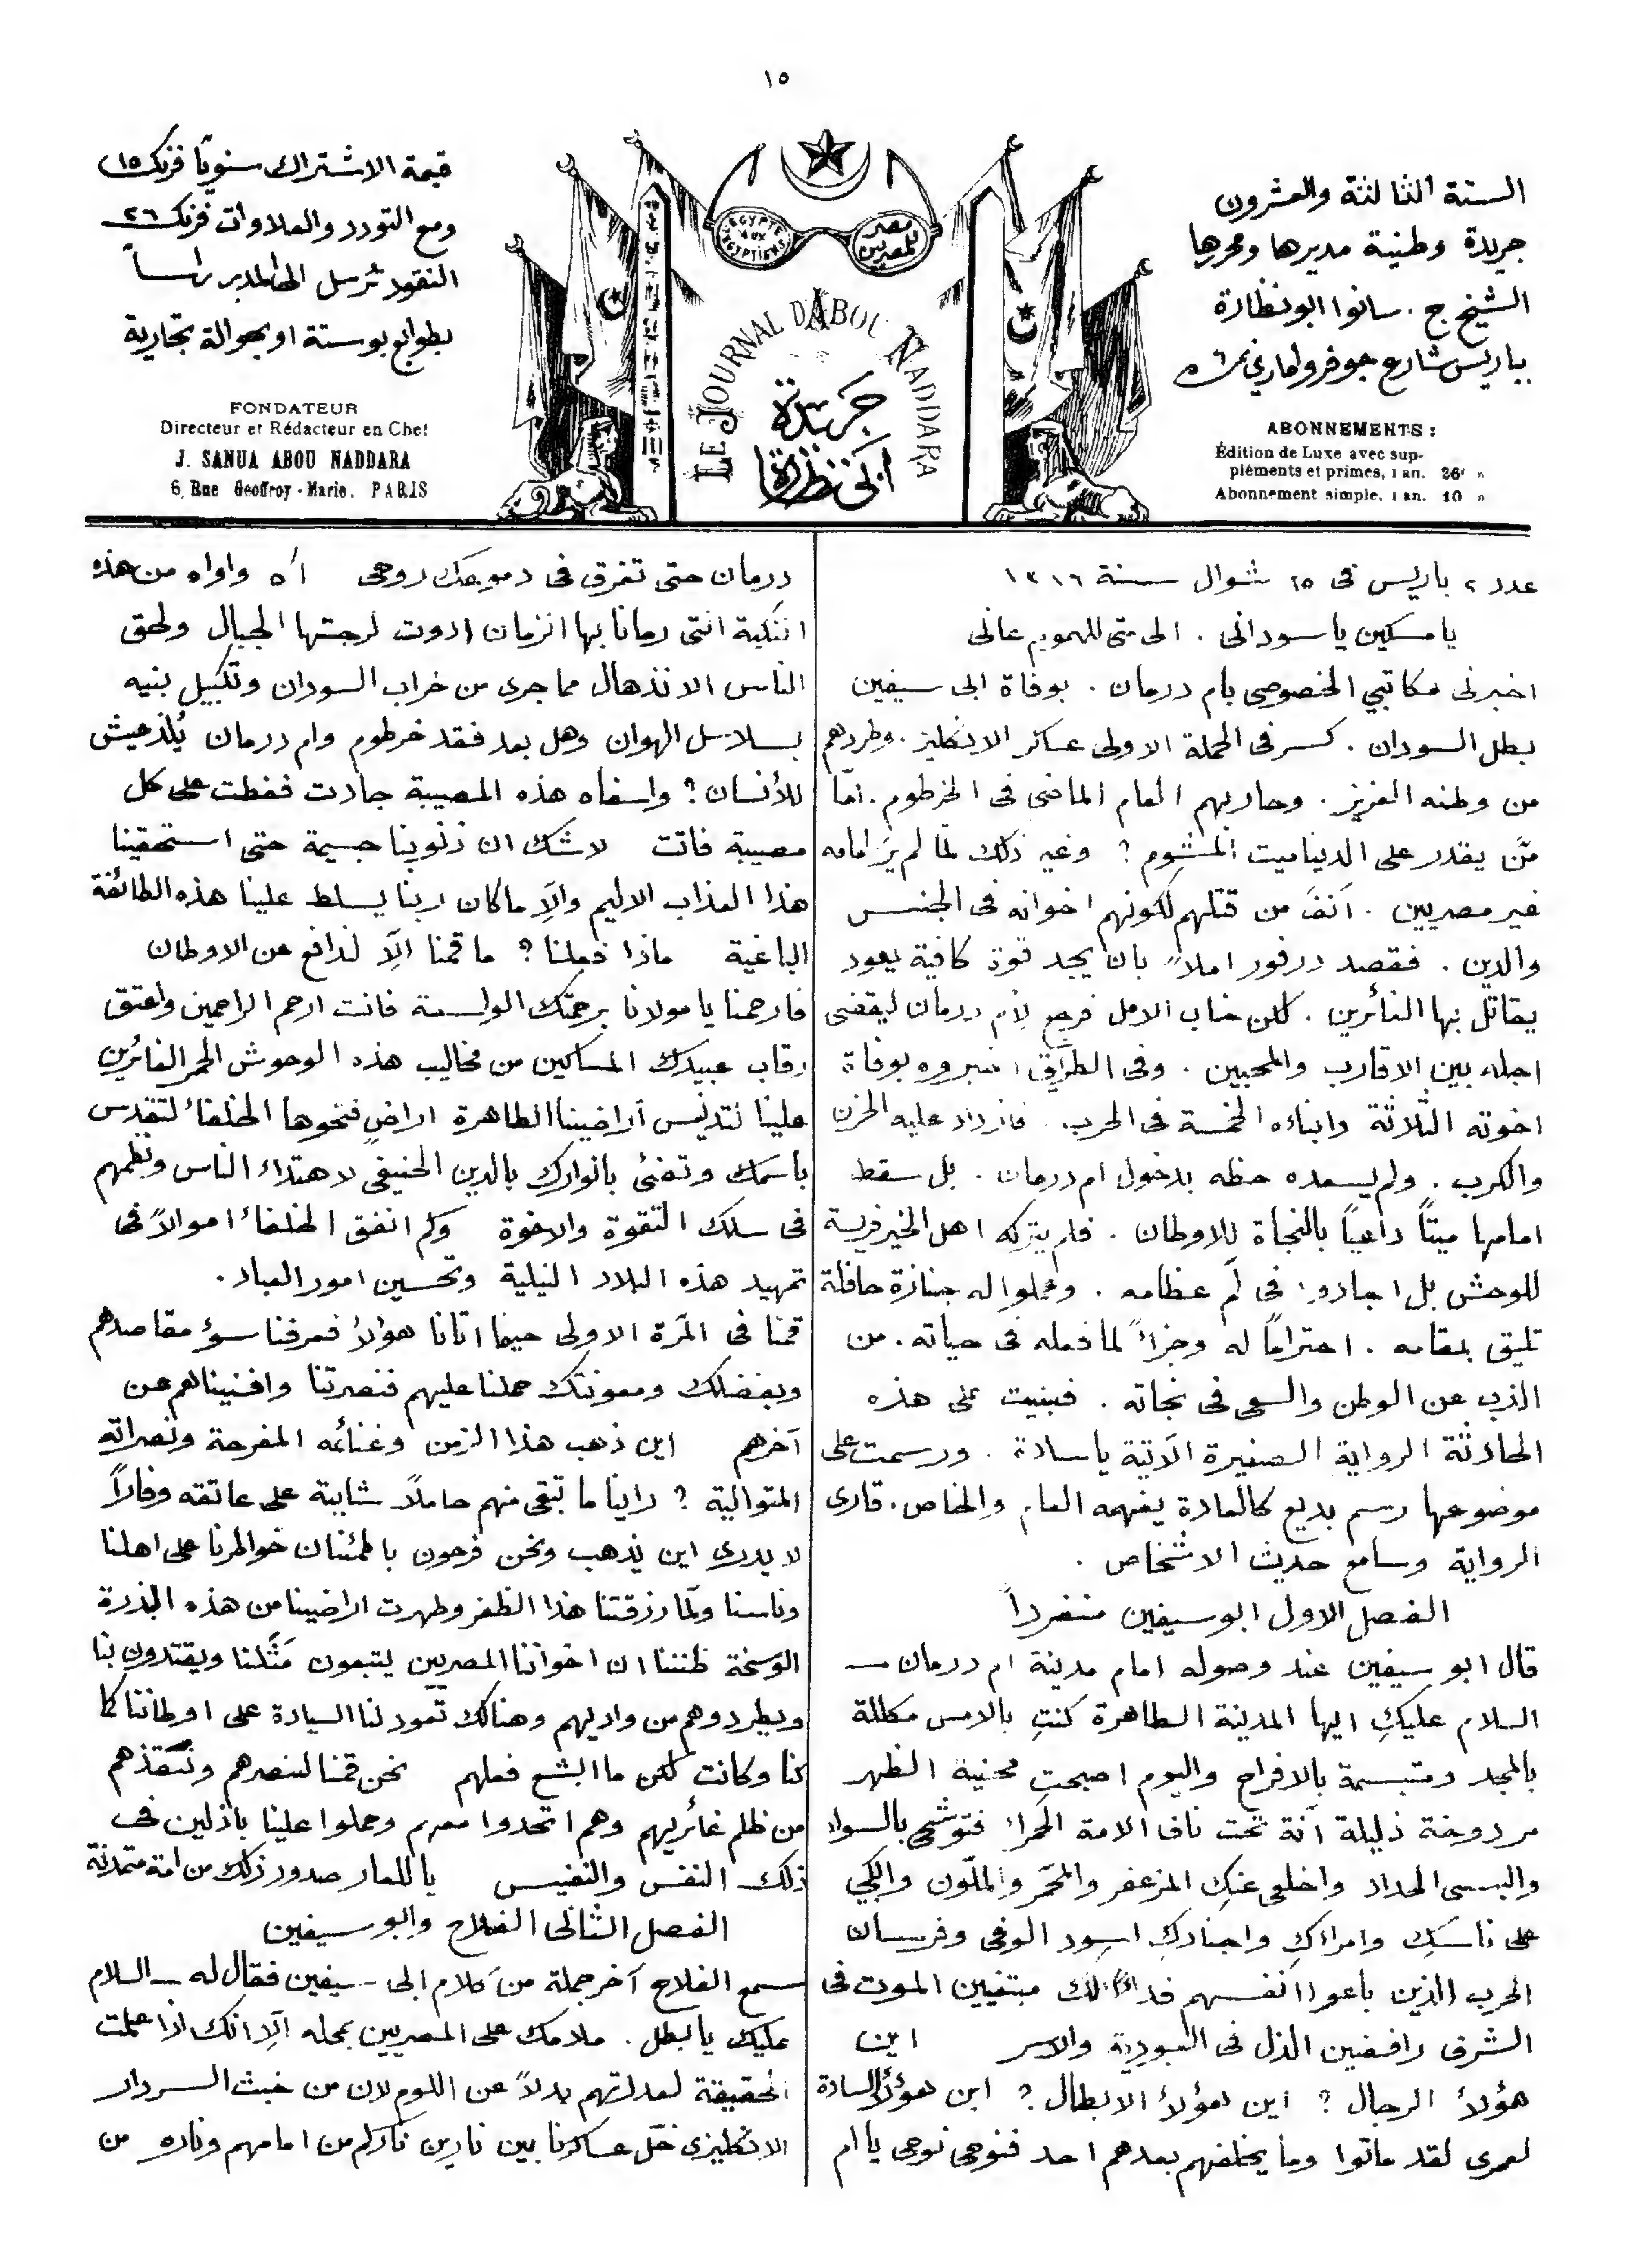 ١٥
السنة الثالثة والعشرون
جريدة وطنية مديرها ومحررها
الشيخ ج. سانوا ابو نظارة
بباريس شارع جوفروا ماري نمرة ٦
ABONNEMENTS :
Édition de Luxe avec sup-
pléments et primes, 1 an. 26f »
Abonnement simple, 1 an. 10 »
EGYPTE AUX EGYPTIENS
مصر للمصريين
LE JOURNAL D'ABOU NADDARA
جريدة
ابى نظارة
قيمة الاشتراك سنويًا فرنك ١٥
ومع التودد والعلاوات فرنك ٢٦
النقود ترسل الى المدير راساً
بطوابع بوستة او بحوالة تجارية
FONDATEUR
Directeur et Rédacteur en Chef
J. SANUA ABOU NADDARA
6, Rue Geoffroy-Marie, PARIS
عدد ٢ باريس فى ٢٥ شوال سنة ١٣١٦
يا مسكين يا سودانى . الى متى للهموم عانى
اخبرنى مكاتبي الخصوصى بام درمان . بوفاة ابى سيفين
بطل السودان . كسر فى الحملة الاولى عساكر الانكليز . وطردهم
من وطنه العزيز . وحاربهم العام الماضى فى الخرطوم . امّا
مَن يقدر على الديناميت المشوم ؟ وغير ذلك لمّا لم يَرَ امامه
غير مصريين . اَنفَ من قتلهم لكونهم اخوانه فى الجنس
والدين . فقصد درفور املاً بان يجد قوة كافية يعود
يقاتل بها الثائرين . لكن خاب الامل فرجع لأم درمان ليقضى
اجله بين الاقارب والمحبين . وفى الطريق اخبروه بوفاة
اخوته الثلاثة وابناءه الخمسة فى الحرب . فازداد عليه الحزن
والكرب . ولم يسعده حظه بدخول ام درمان . بل سقط
امامها ميتاً داعياً بالنجاة للاوطان . فلم يتركه اهل الخير فريسة
للوحش بل اجادوا فى لَم عظامه . وعملوا له جنازة حافلة
تليق بمقامه . احتراماً له وجزاءً لما فعله فى حياته . من
الذب عن الوطن والسعى فى نجاته . فبنيت على هذه
الحادثة الرواية الصغيرة الآتية يا سادة . ورسمت على
موضوعها رسم بديع كالعادة يفهمه العام والخاص . قارى
الرواية وسامع حديث الاشخاص .
الفصل الاول ابو سيفين منفرداً
قال ابو سيفين عند وصوله امام مدينة ام درمان ــ
السلام عليكِ ايها المدينة الطاهرة كنتِ بالامس مكللة
بالمجد ومتبسمة بالافراح واليوم اصبحتِ محنية الظهر
مردوخة ذليلة آنة تحت ناف الامة الحمراء فتوشحى بالسواد
والبسى الحداد واخلعى عنكِ المزعفر والمحمّر والملّون وابكي
على ناسكِ وامراكِ واجنادكِ اسود الوغى وفرسان
الحرب الذين باعوا انفسهم فداءً لك مبتغيين الموت فى
الشرف رافضين الذل فى العبودية والاسر اين
هؤلاء الرجال ؟ اين هؤلاء الابطال ؟ اين هؤلاء السادة
لعمرى لقد ماتوا وما يخلفهم بعدهم احد فنوحى نوحى يا ام
درمان حتى تغرق فى دموعك روحى آه واواه من هذه
النكبة التى رمانا بها الزمان ادوت لرجتها الجبال ولحق
الناس الانذهال مما جرى من خراب السودان وتكبيل بنيه
بسلاسل الهوان وهل بعد فقد خرطوم وام درمان يُلذ عيش
للأنسان ؟ واسفاه هذه المصيبة جادت فغطت على كل
مصيبة فاتت لا شك ان ذنوبنا جسيمة حتى استحقينا
هذا العذاب الاليم والاَّ ما كان ربنا يسلط علينا هذه الطائفة
الباغية ماذا فعلنا ؟ ما قمنا الاَّ لندافع عن الاوطان
فارحمنا يا مولانا برحمتك الواسعة فانت ارحم الراحمين واعتق
رقاب عبيدك المساكين من مخاليب هذه الوحوش الحمر الغائرين
علينا لتدنيس اراضينا الطاهرة اراضٍ فتحوها الخلفاء لتقدس
باسمك وتضئ بانوارك بالدين الحنيفى لاهتداء الناس ونظمهم
فى سلك التقوة والاخوة وكم انفق الخلفاء اموالاً فى
تمهيد هذه البلاد النيلية وتحسين امور العباد .
قمنا فى المرّة الاولى حيما اتانا هؤلاء فعرفنا سوء مقاصدهم
وبفضلك ومعونتك حملنا عليهم فنصرتنا وافنيناهم عن
آخرهم اين ذهب هذا الزمن وغنائمه المفرحة ونصراته
المتوالية ؟ راينا ما تبقى منهم حاملاً شابية على عاتقه وفاراً
لا يدرى اين يذهب ونحن فرحون باطمئنان خواطرنا على اهلنا
وناسنا ولمّا رزقتنا هذا الظفر وطهرت اراضينا من هذه البذرة
الوسخة ظننا ان اخواننا المصريين يتبعون مَثَلنا ويقتدون بنا
ويطردوهم من واديهم وهنالك تعود لنا السيادة على اوطاننا كما
كنا وكانت لكن ما ابشع فعلهم نحن قمنا لننصرهم وننقذهم
من ظلم غائريهم وهم اتحدوا معهم وحملوا علينا باذلين فى
ذلك النفس والنفيس يا للعار صدور ذلك من امة متمدنة
الفصل الثانى الفلاح وابو سيفين
سمع الفلاح آخر جملة من كلام ابى سيفين فقال له ــ السلام
عليك يا بطل . ملامك على المصريين بمحله الاّ انك اذا علمت
الحقيقة لعذلتهم بدلاً عن اللوم لان من خبث السردار
الانكليزى خلّى عساكرنا بين نارين ناركم من امامهم وناره من